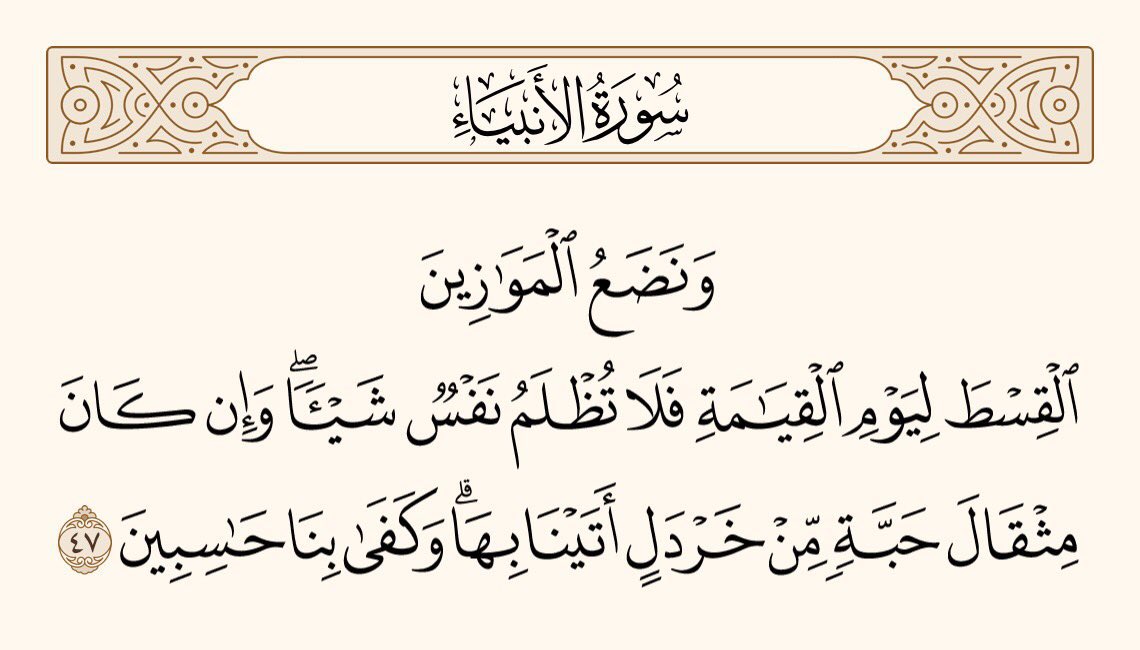 سُورَةُ الأَنبِيَاءِ
وَنَضَعُ ٱلْمَوَٰزِينَ
ٱلْقِسْطَ لِيَوْمِ ٱلْقِيَـٰمَةِ فَلَا تُظْلَمُ نَفْسٌ شَيْـًٔا ۖ وَإِن كَانَ
مِثْقَالَ حَبَّةٍ مِّنْ خَرْدَلٍ أَتَيْنَا بِهَا ۗ وَكَفَىٰ بِنَا حَـٰسِبِينَ ٤٧